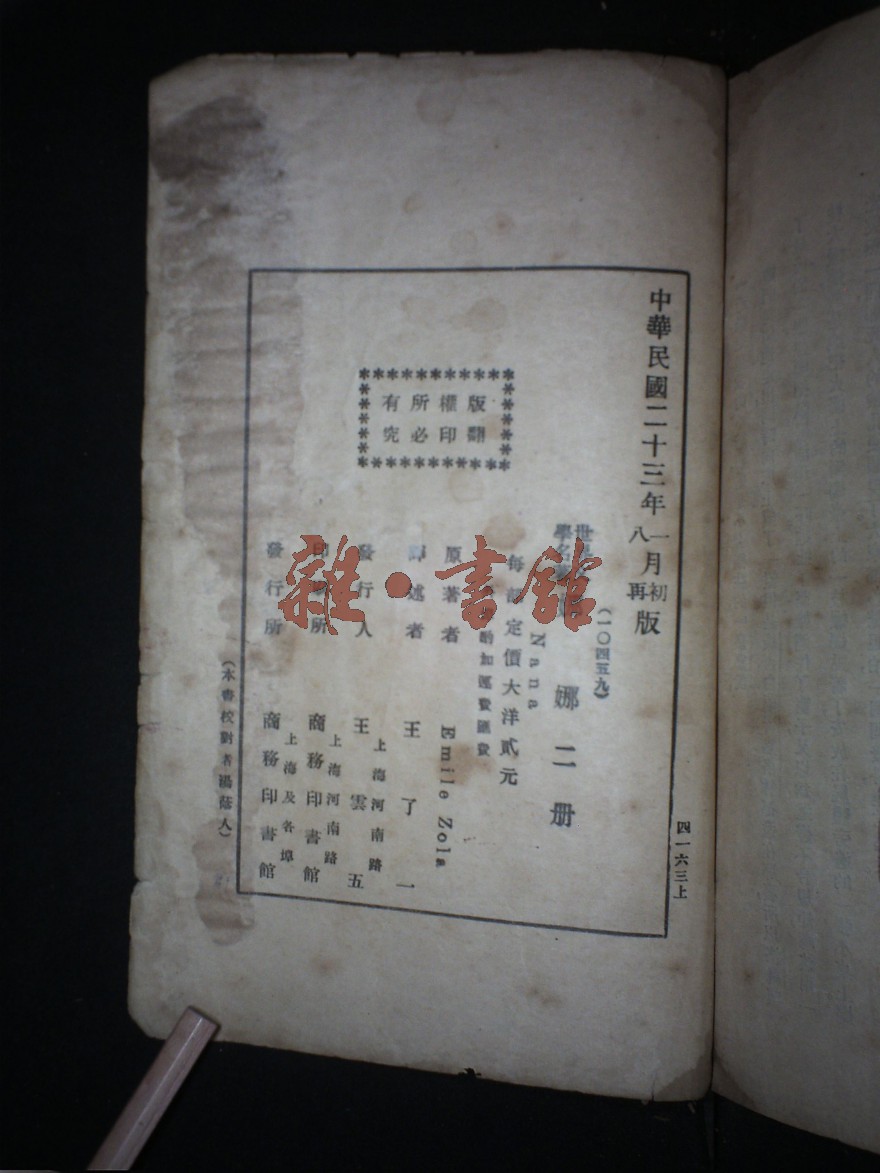 中華民國二十三年一月初版
八再
(一〇四五九)
世
學名
娜二册
Nana
每部定價大洋貳元
酌加運費匯費
原著者 Emile Zola
述者 王了一
發行人 王雲五
上海河南路
印所 商務印書館
上海河南路
發行所 商務印書館
上海及各埠
(本書校對者湯蔭人)
版權所有
翻印必究
四一六三上
雜·書館